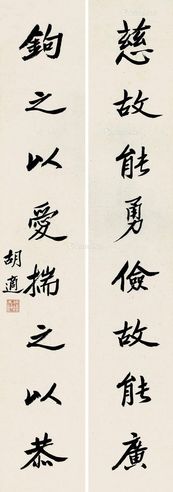 慈故能勇儉故能廣
鉤之以愛揣之以恭
胡適